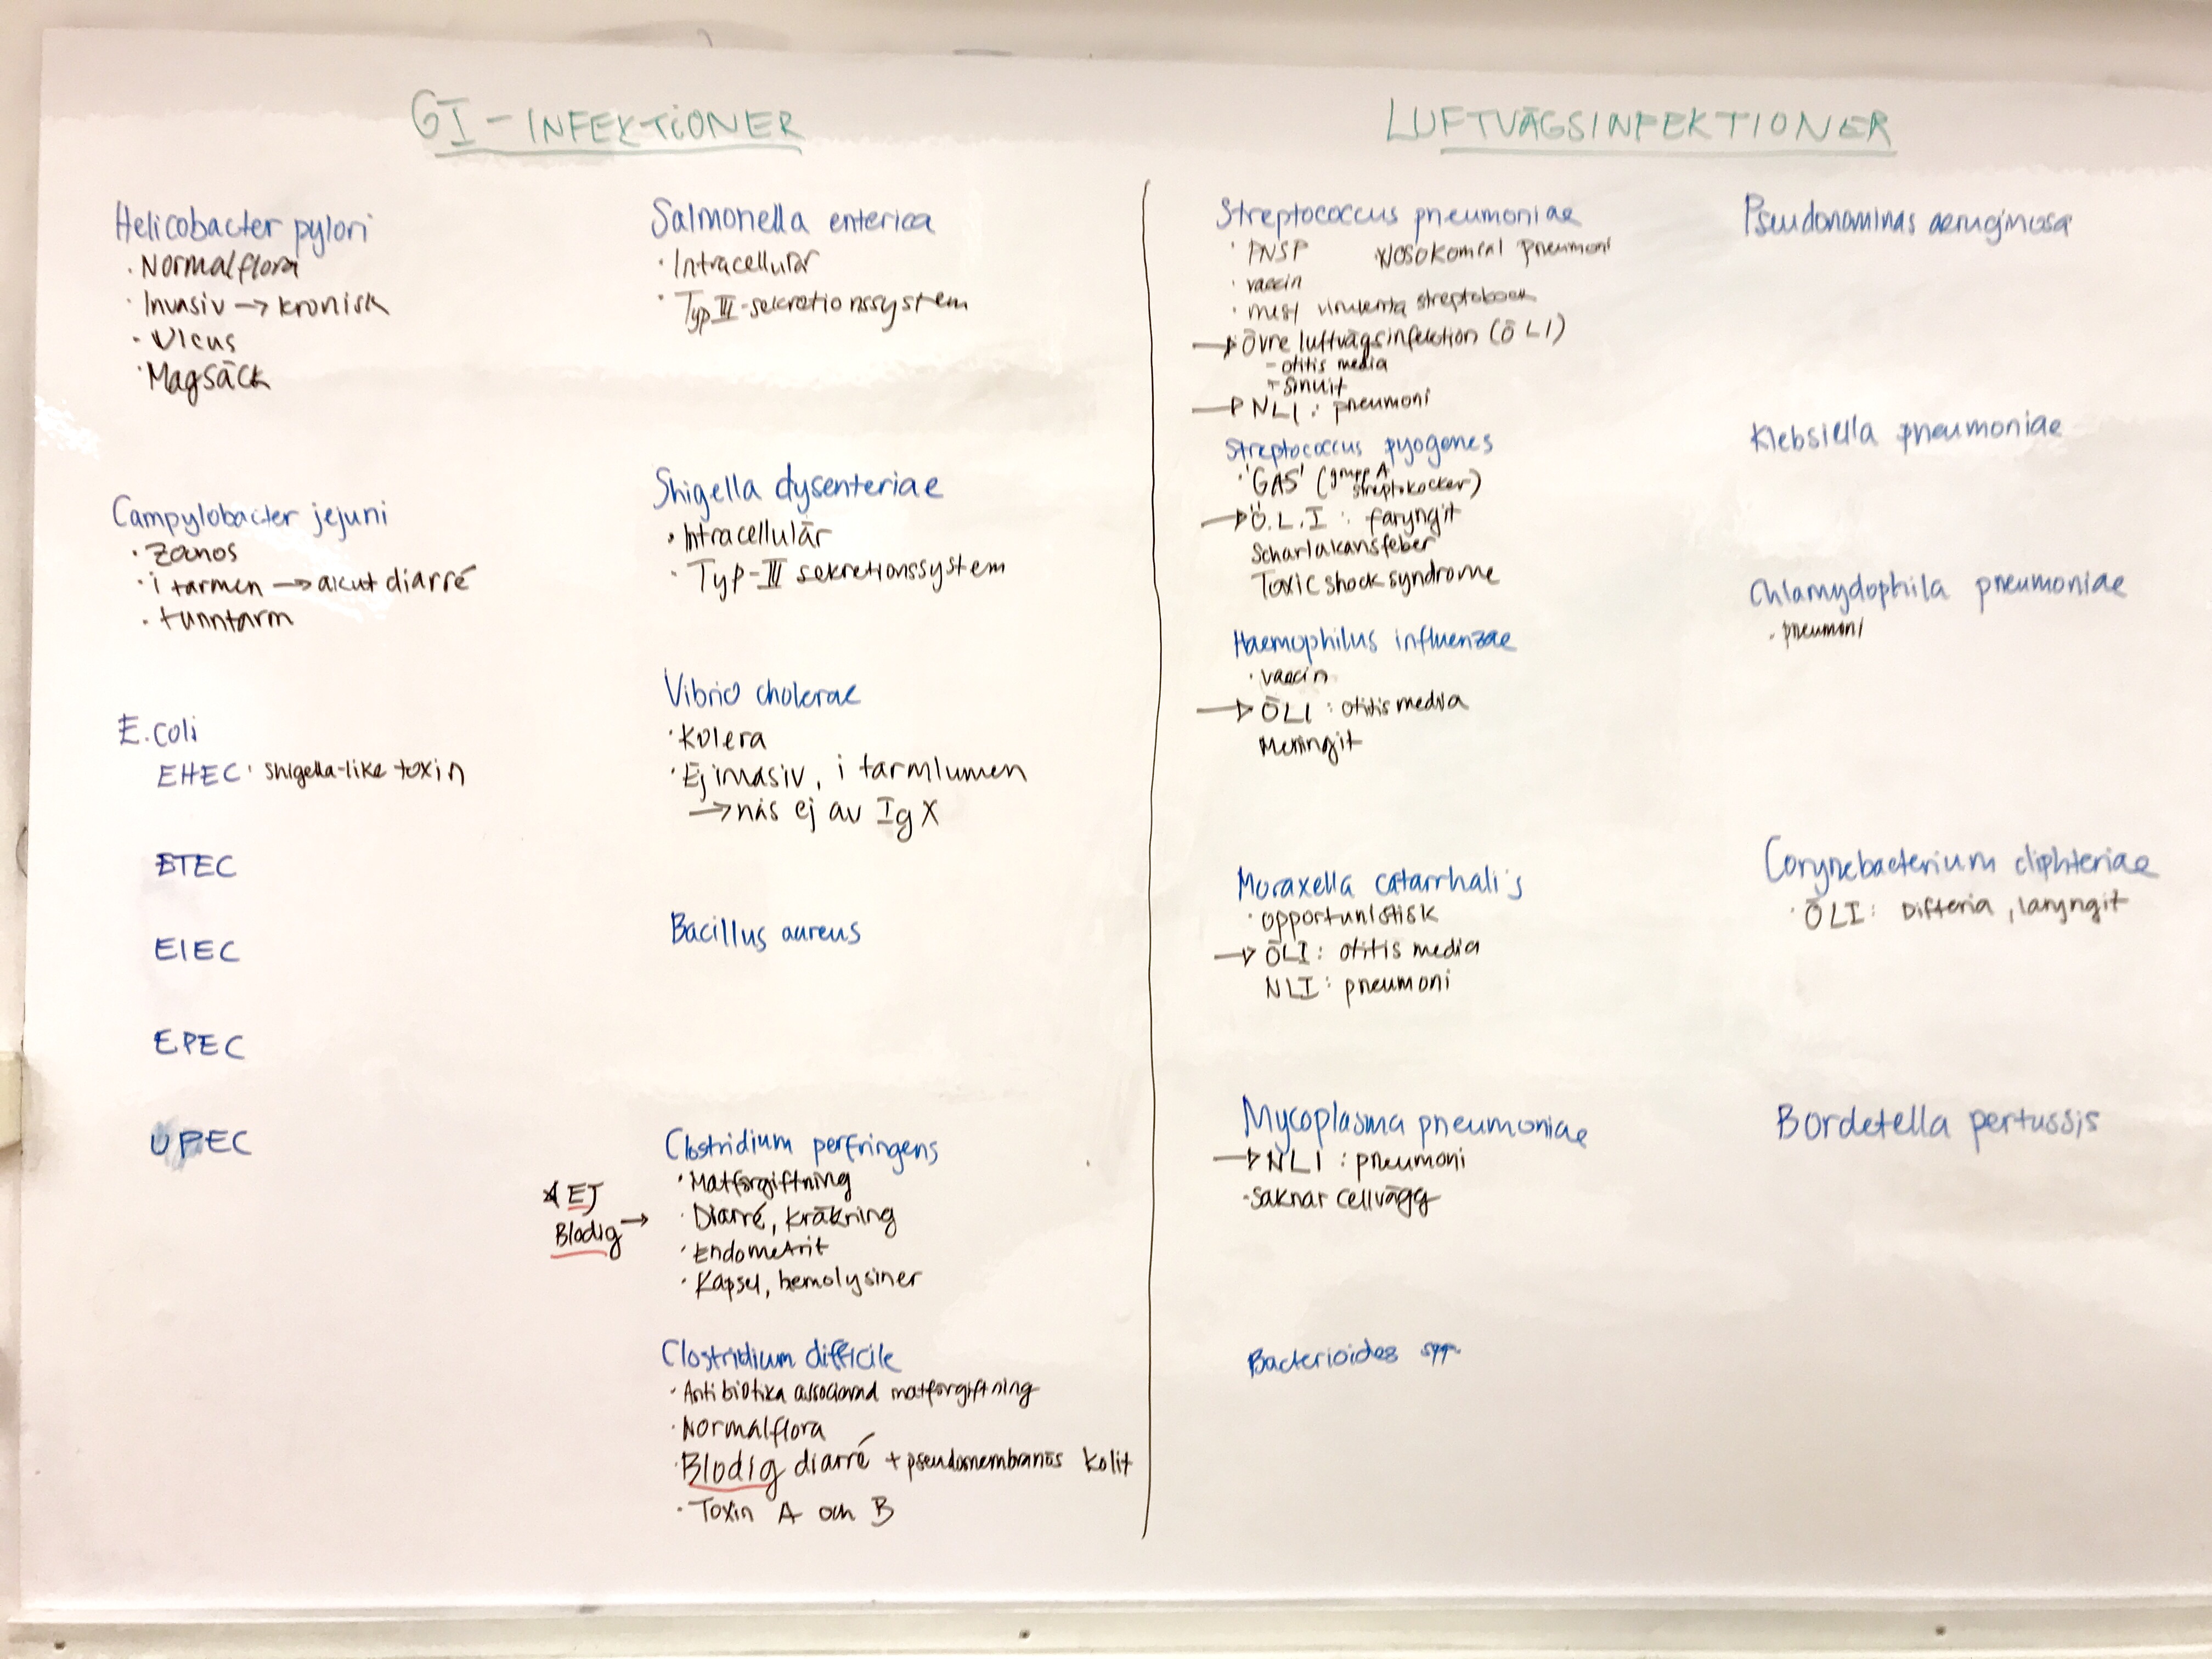 GI-INFEKTIONER
Helicobacter pylori
· Normalflora
· Invasiv → kronisk
· Ulcus
· Magsäck
Campylobacter jejuni
· Zoonos
· i tarmen → akut diarré
· tunntarm
E.coli
EHEC: Shigella-like toxin
ETEC
EIEC
EPEC
UPEC
Salmonella enterica
· Intracellulär
· Typ III-sekretionssystem
Shigella dysenteriae
· Intracellulär
· Typ-III sekretionssystem
Vibrio cholerae
· Kolera
· Ej invasiv, i tarmlumen
→ nås ej av Ig X
Bacillus aureus
Clostridium perfringens
· Matförgiftning
· Diarré, kräkning
· Endometrit
· Kapsel, hemolysiner
EJ
Blodig →
Clostridium difficile
· Antibiotika associerad matförgiftning
· Normalflora
· Blodig diarré + pseudomembranös kolit
· Toxin A och B
LUFTVÄGSINFEKTIONER
Streptococcus pneumoniae
· PNSP Nosokomial pneumoni
· vaccin
· mest virulenta
→ Övre luftvägsinfektion (ÖLI)
- otitis media
- sinuit
→ NLI: pneumoni
Streptococcus pyogenes
· 'GAS' (grupp A
streptokocker)
→ Ö.L.I : faryngit
Scharlakansfeber
Toxic shock syndrome
Haemophilus influenzae
· vaccin
→ ÖLI : otitis media
Meningit
Moraxella catarrhalis
· opportunistisk
→ ÖLI: otitis media
NLI: pneumoni
Mycoplasma pneumoniae
→ NLI : pneumoni
- saknar cellvägg
Bacterioides spp.
Pseudonominas aeruginosa
Klebsiella pneumoniae
Chlamydophila pneumoniae
· pneumoni
Corynebacterium diphteriae
· ÖLI: Difteria, laryngit
Bordetella pertussis